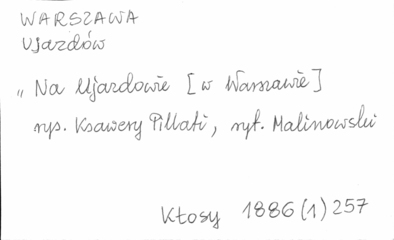 WARSZAWA
Ujazdów
„Na Ujazdowie [w Warszawie]
rys. Ksawery Pillati, ryt. Malinowski
Kłosy 1886 (1) 257